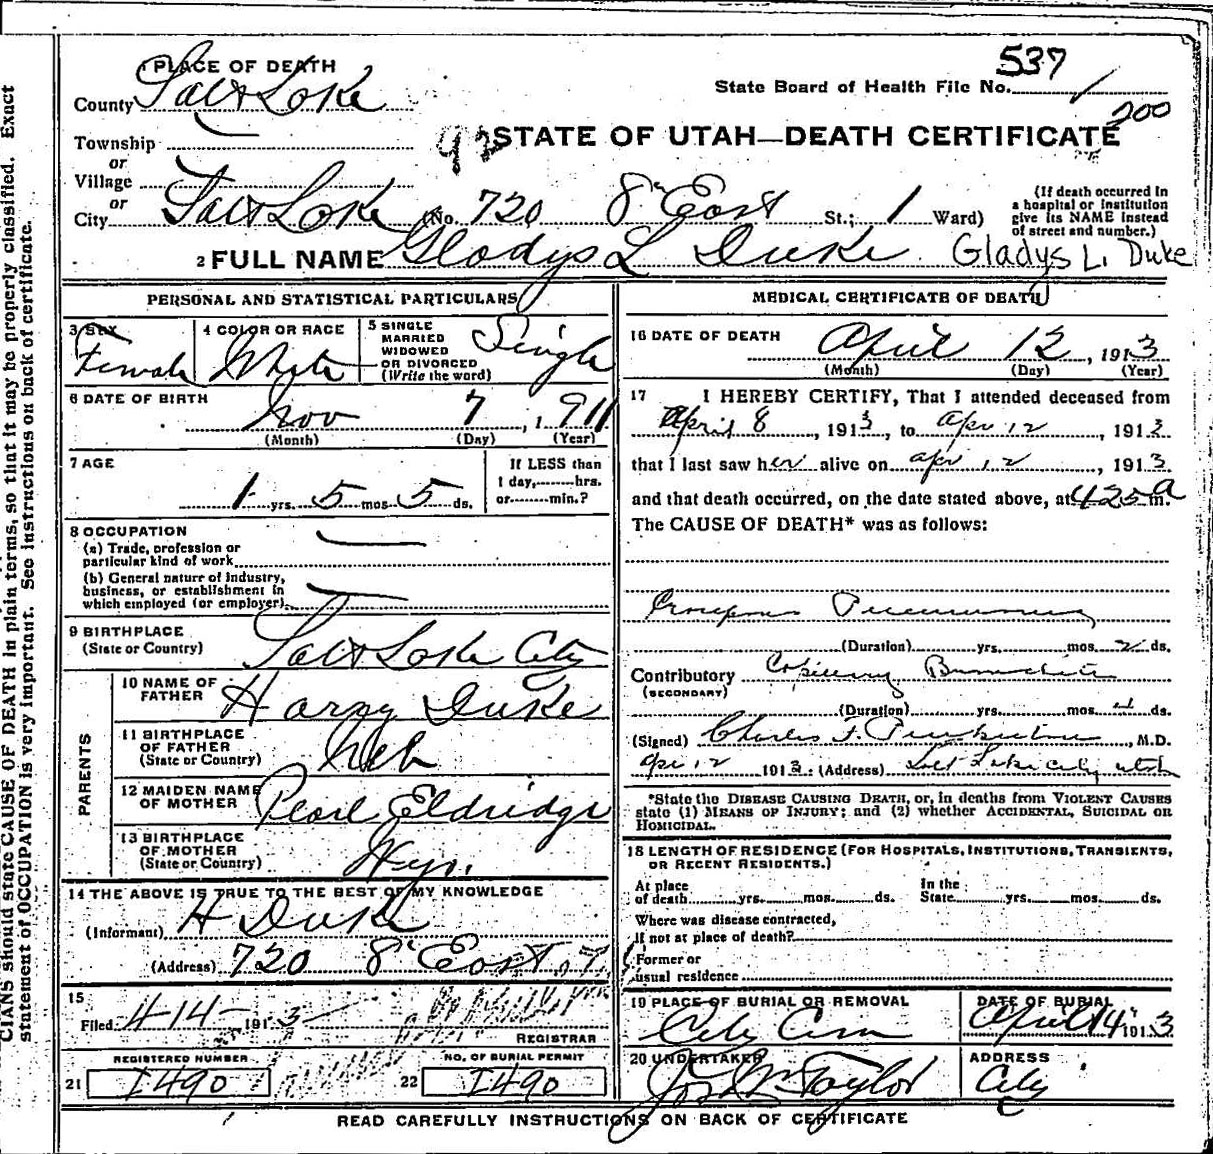 CIANS should state CAUSE OF DEATH in plain terms, so that it may be properly classified. Exact
statement of OCCUPATION is very important. See instructions on back of certificate.
1 PLACE OF DEATH
County Salt Lake
State Board of Health File No. 537
200
Township
or
Village
or
STATE OF UTAH—DEATH CERTIFICATE
92
City Salt Lake (No. 720 8" East St.; 1 Ward)
(If death occurred in
a hospital or institution
give its NAME instead
of street and number.)
2 FULL NAME Gladys L Duke Gladys L. Duke
PERSONAL AND STATISTICAL PARTICULARS
3 SEX Female
4 COLOR OR RACE White
5 SINGLE
MARRIED
WIDOWED
OR DIVORCED
(Write the word) Single
6 DATE OF BIRTH
Nov 7, 1911
(Month) (Day) (Year)
7 AGE
1 yrs. 5 mos. 5 ds.
If LESS than
1 day, hrs.
or min.?
8 OCCUPATION
(a) Trade, profession or
particular kind of work
(b) General nature of industry,
business, or establishment in
which employed (or employer)
9 BIRTHPLACE
(State or Country) Salt Lake City
PARENTS
10 NAME OF
FATHER Harry Duke
11 BIRTHPLACE
OF FATHER
(State or Country)
12 MAIDEN NAME
OF MOTHER Pearl Eldridge
13 BIRTHPLACE
OF MOTHER
(State or Country) Wyo.
14 THE ABOVE IS TRUE TO THE BEST OF MY KNOWLEDGE
(Informant) H Duke
(Address) 720 8" East
15
Filed 4-14- 1913
REGISTRAR
REGISTERED NUMBER
21 I490
NO. OF BURIAL PERMIT
22 I490
MEDICAL CERTIFICATE OF DEATH
16 DATE OF DEATH April 12, 1913
(Month) (Day) (Year)
17 I HEREBY CERTIFY, That I attended deceased from
April 8, 1913, to Apr 12, 1913
that I last saw her alive on apr 12, 1913.
and that death occurred, on the date stated above, at 425 a m.
The CAUSE OF DEATH* was as follows:
Croupous Pneumonia
(Duration) yrs. mos. 2 ds.
Contributory Capillary Bronchitis
(SECONDARY)
(Duration) yrs. mos. 4 ds.
(Signed) Charles F. , M.D.
Apr 12 1913. (Address) Salt Lake City Utah
*State the DISEASE CAUSING DEATH, or, in deaths from VIOLENT CAUSES
state (1) MEANS OF INJURY; and (2) whether ACCIDENTAL, SUICIDAL OR
HOMICIDAL.
18 LENGTH OF RESIDENCE (FOR HOSPITALS, INSTITUTIONS, TRANSIENTS,
OR RECENT RESIDENTS.)
At place
of death yrs. mos. ds.
In the
State yrs. mos. ds.
Where was disease contracted,
if not at place of death?
Former or
usual residence
19 PLACE OF BURIAL OR REMOVAL
City Cem
DATE OF BURIAL
April 14" 1913
20 UNDERTAKER
Jos. Wm Taylor
ADDRESS
City
READ CAREFULLY INSTRUCTIONS ON BACK OF CERTIFICATE